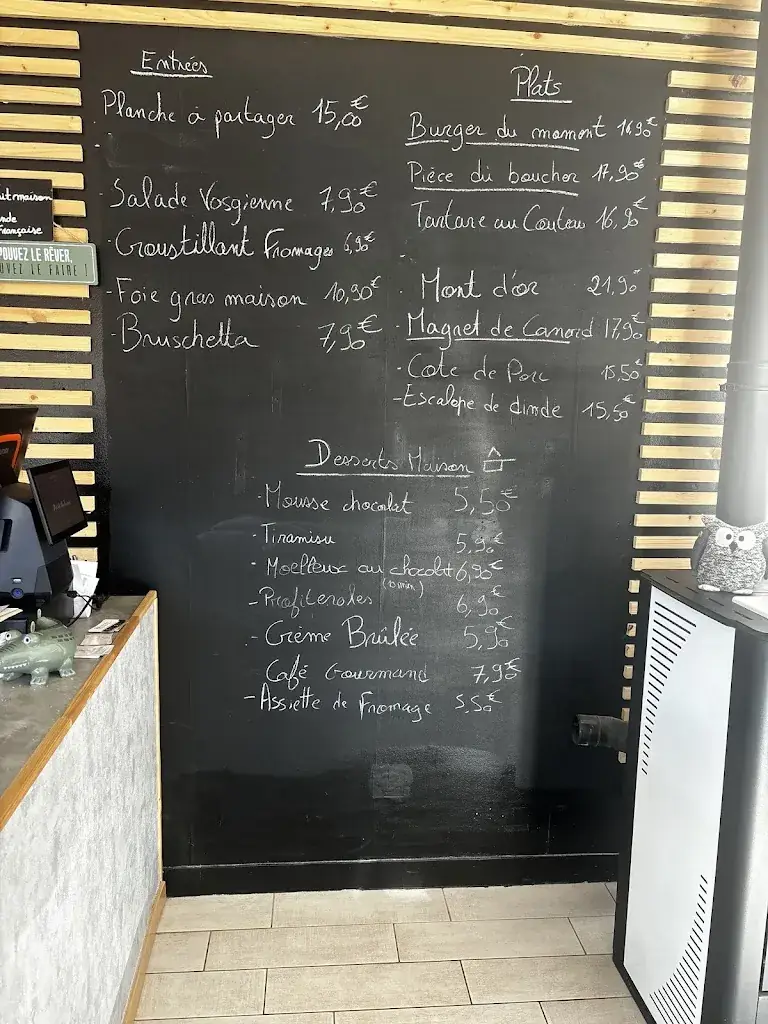 Entrées
Planche à partager 15,00€
Salade Vosgienne 7,90€
Croustillant Fromages 6,90€
-Foie gras maison 10,90€
-Bruschetta 7,90€
Plats
Burger du moment 16,90€
Pièce du boucher 17,90€
Tartare au Couteau 16,90€
- Mont d'or 21,90€
- Magret de Canard 17,90€
- Cote de Porc 15,50€
-Escalope de dinde 15,50€
Desserts Maison
-Mousse chocolat 5,50€
-Tiramisu 5,90€
- Moelleux au chocolat 6,90€
-Profiteroles 6,90€
-Crème Brûlée 5,90€
Café Gourmand 7,90€
-Assiette de Fromage 5,50€
Française
POUVEZ LE RÊVER,
UVEZ LE FAIRE !